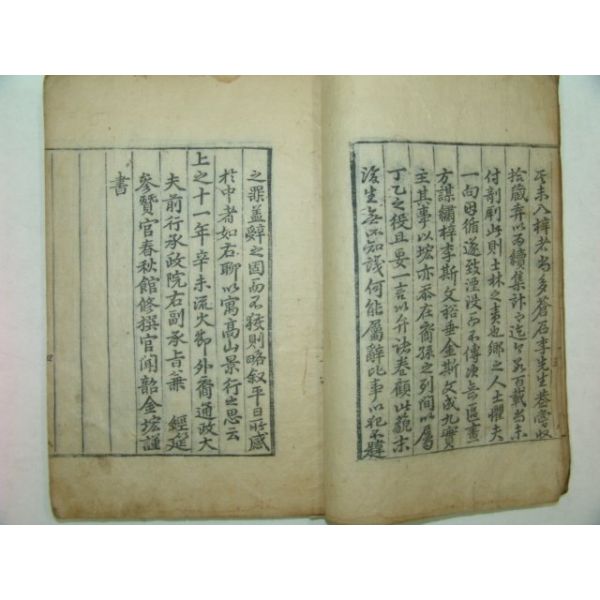 未入梓者尚多蒼石李先生嘗收
拾藏弆以爲續集計而迄今百載尚未
付剞劂此則士林之責也鄕之人士懼夫
一向因循遂致湮沒而不傳後
方謀繡梓李斯文裕垂金斯文成九實
主其事以㙆亦忝在裔孫之列間以屬
丁乙之役且要一言以弁諸卷顧此藐末
後生無不知識何能屬辭比事以犯不韙
之罪盖辭之固而不獲則略叙平日所感
於中者如右聊以寓高山景行之思云
上之十一年辛未流火節外裔通政大
夫前行承政院右副承旨兼 經筵
參贊官春秋館修撰官聞韶金㙆謹
書